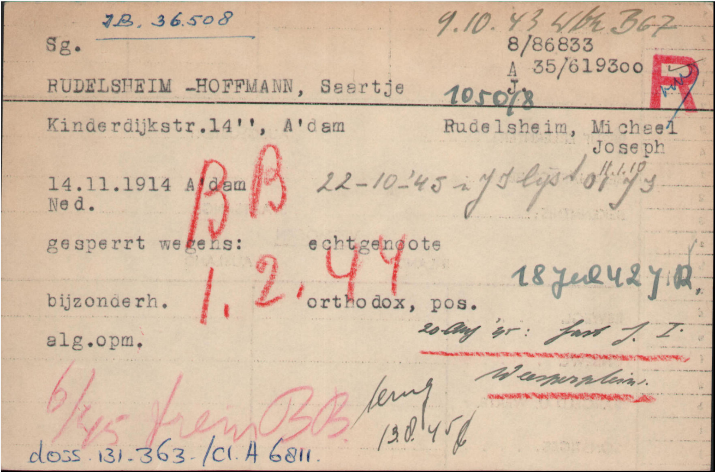 IB. 36.508
9.10.43 Wbk B67
Sg.
8/86833
A 35/619300
J
R
RUDELSHEIM -HOFFMANN, Saartje
1050/8
Kinderdijkstr.14'', A'dam
Rudelsheim, Michael
Joseph
11.1.10
14.11.1914 A'dam
22-10-'45
Ned.
BB
gesperrt wegens: echtgenoote
1.2.44
18 Jul 42 J.R.
bijzonderh. orthodox, pos.
20 Aug '45: J. I.
alg.opm.
Weesperplein.
6/45 trein BB.
terug
13.8.45
doss. 131-363./Cl.A 6811.